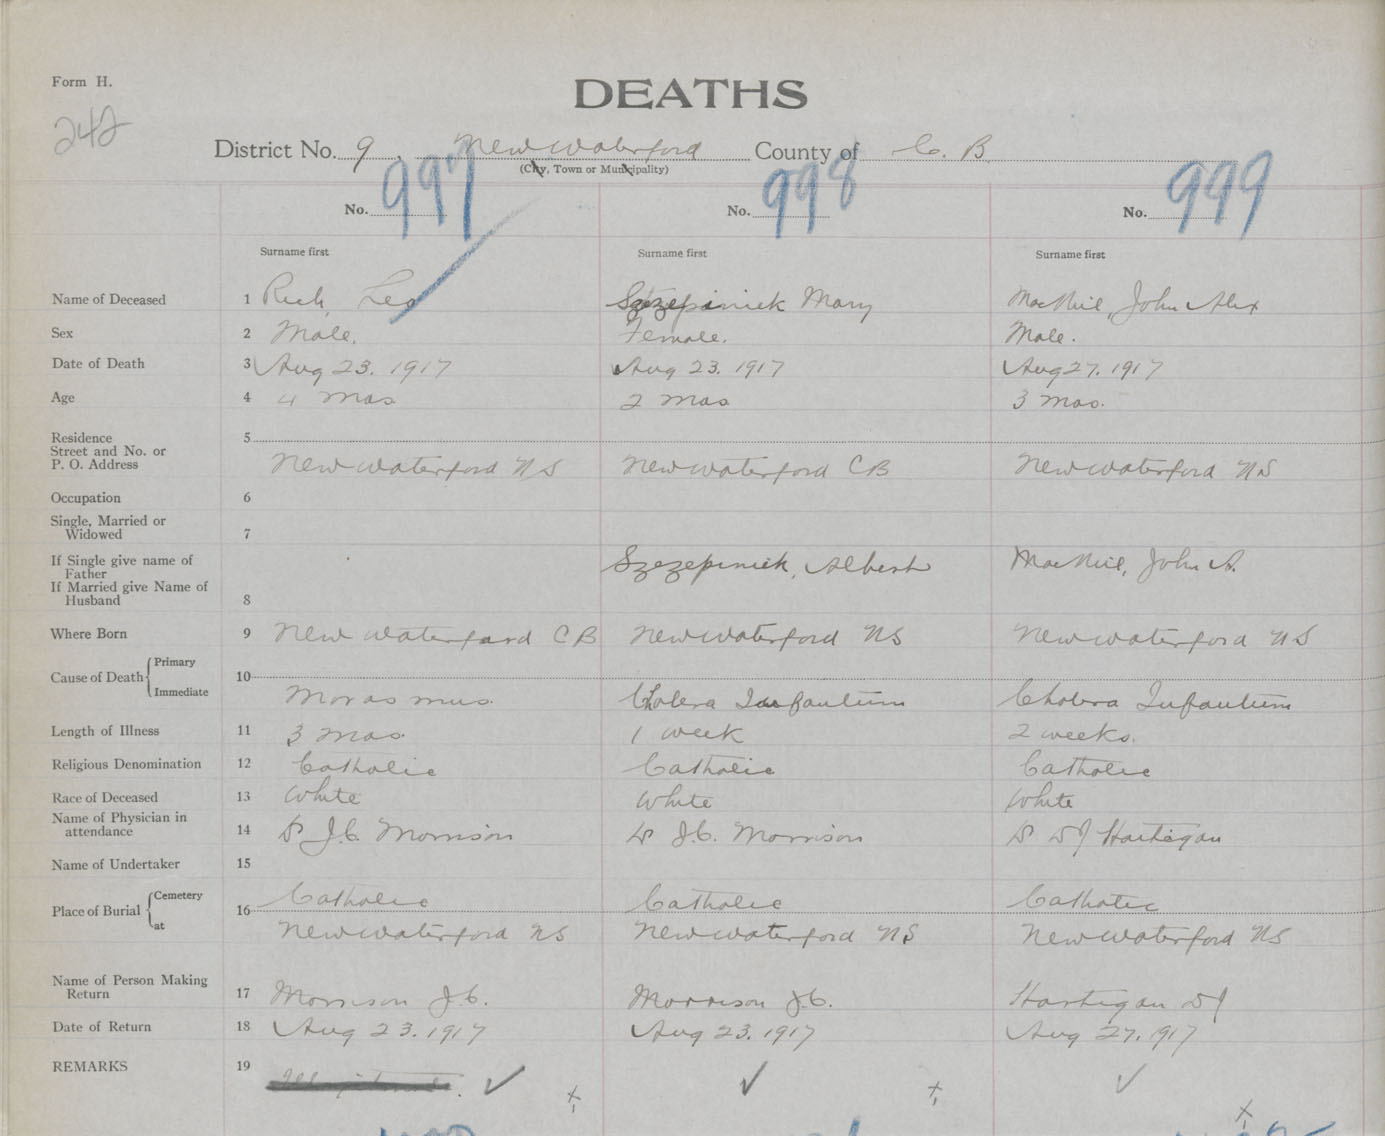 Form H.
DEATHS
242
District No. 9, New Waterford County of C. B.
(City, Town or Municipality)
No. 997 No. 998 No. 999
Surname first Surname first Surname first
Name of Deceased 1 Rich, Leo Szezepiniek Mary MacNeil, John Alex
Sex 2 Male. Female. Male.
Date of Death 3 Aug 23. 1917 Aug 23. 1917 Aug 27. 1917
Age 4 4 mos 2 mos 3 mos.
Residence 5
Street and No. or
P. O. Address New Waterford NS New Waterford CB New Waterford NS
Occupation 6
Single, Married or
Widowed 7
If Single give name of
Father Szezepiniek, Albert MacNeil, John A.
If Married give Name of
Husband 8
Where Born 9 New Waterford CB New Waterford NS New Waterford NS
Cause of Death Primary 10
Immediate Morasmus. Cholera Infantum Cholera Infantum
Length of Illness 11 3 mos. 1 week 2 weeks.
Religious Denomination 12 Catholic Catholic Catholic
Race of Deceased 13 White White White
Name of Physician in
attendance 14 Dr J.C. Morrison Dr J.C. Morrison Dr DJ Hartigan
Name of Undertaker 15
Place of Burial Cemetery 16 Catholic Catholic Catholic
at New Waterford NS New Waterford NS New Waterford NS
Name of Person Making
Return 17 Morrison J.C. Morrison J.C. Hartigan DJ
Date of Return 18 Aug 23. 1917 Aug 23. 1917 Aug 27. 1917
REMARKS 19